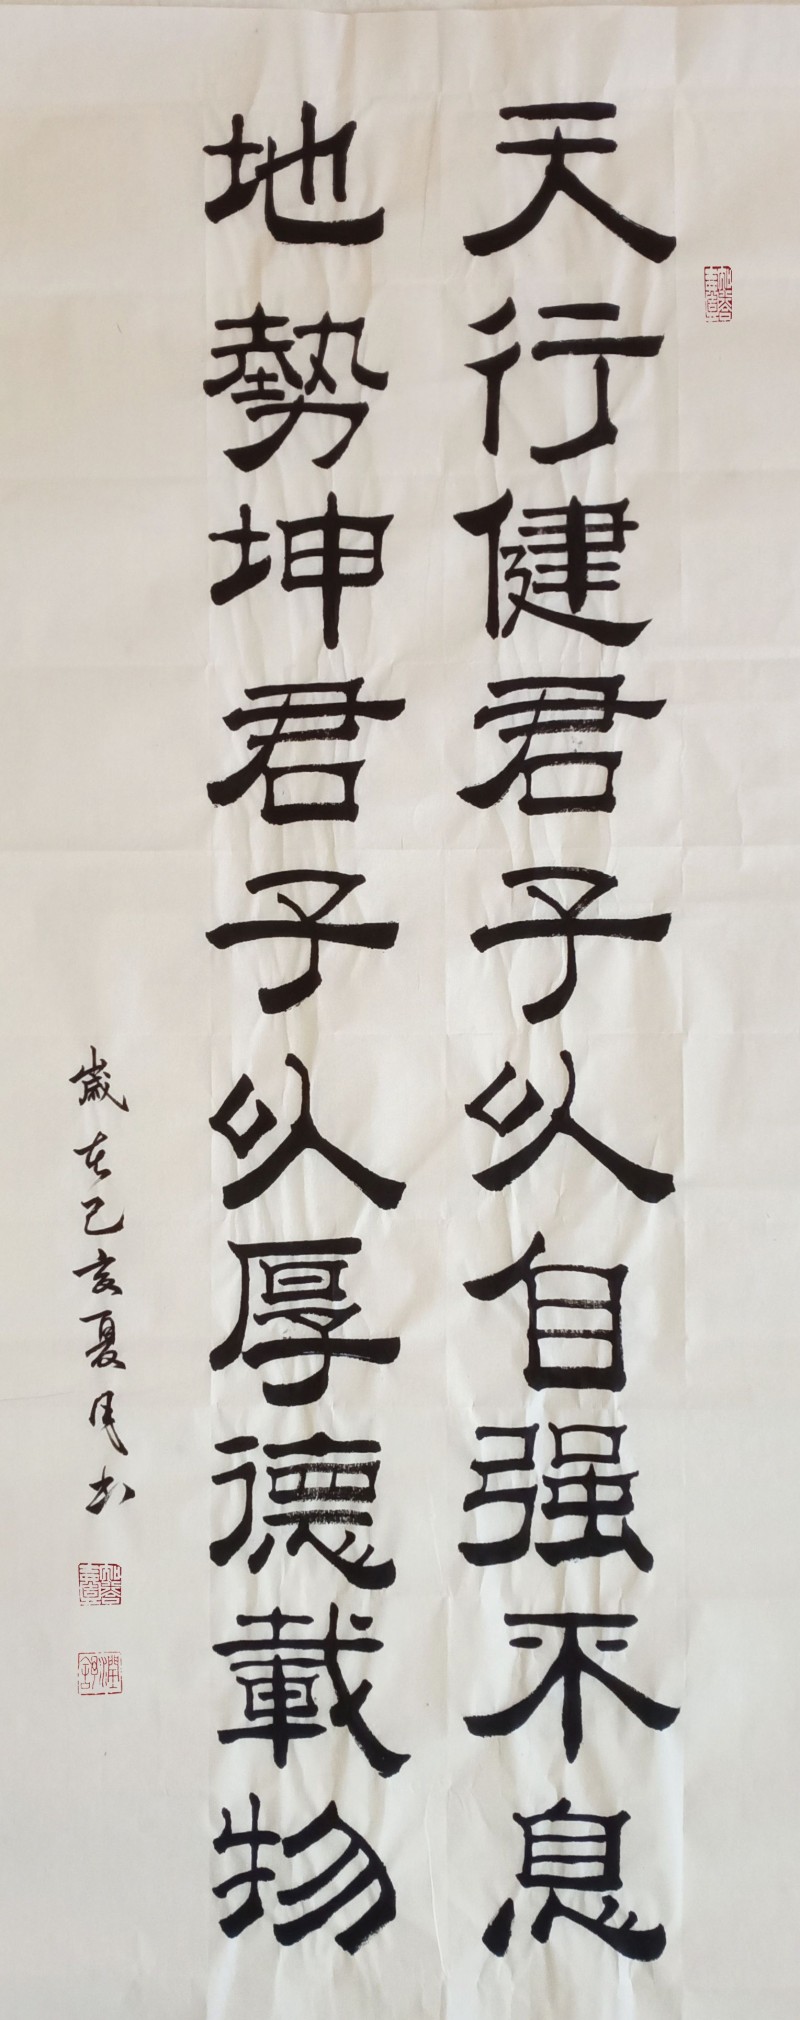 天行健君子以自强不息
地勢坤君子以厚德載物
歲在己亥夏月书